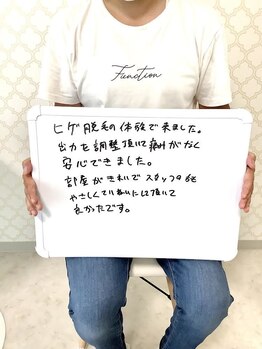 Function
ヒゲ脱毛の体験で来ました。
出力を調整頂いて痛みがなく
安心できました。
部屋がきれいでスタッフの方も
やさしくていねいに
頂いて
良かったです。